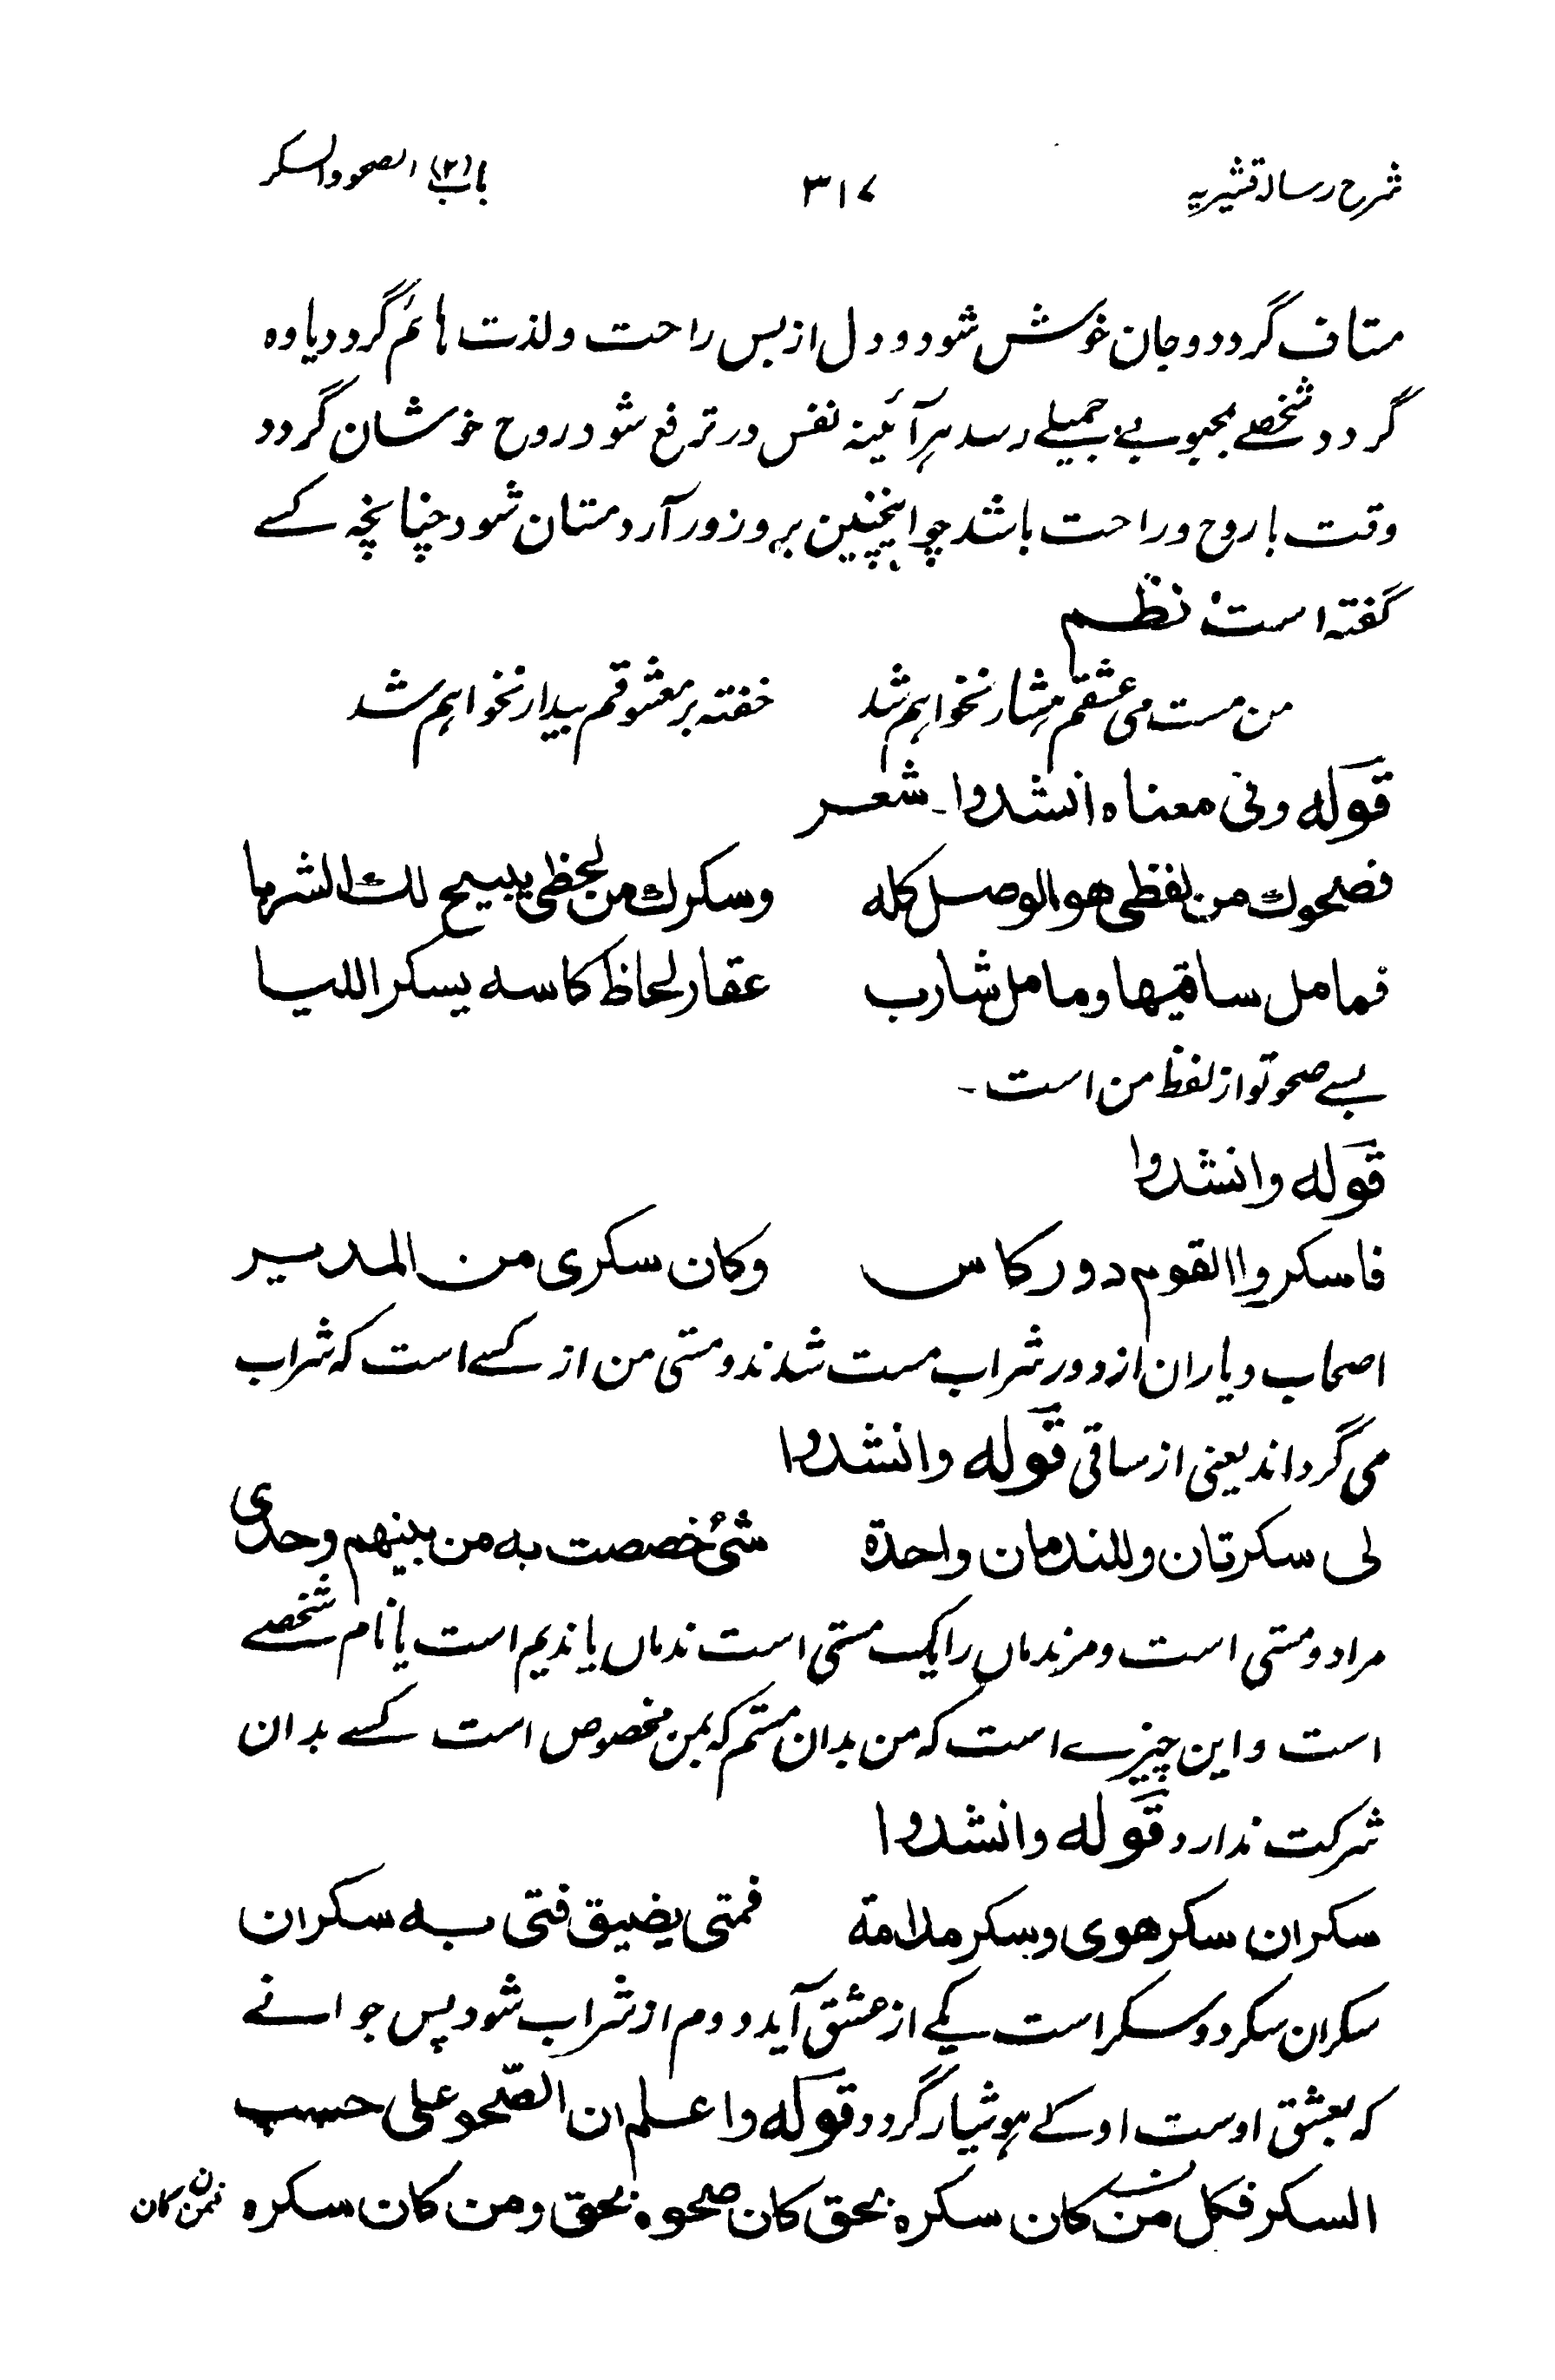 شرح رسالہ قشیریہ ۳۱۷ باب (۲) الصحو والسکر
متاف گردد و جان خوش شود و دل از بس راحت و لذت ہائم گردد یاوہ
گردد شخصے بمحبوبے جمیلے رسد ہر آئینہ نفس در ترفع شود روح خوشان گردد
وقت باروح و راحت باشد چو اینچنین برو زور آرد مستان شود چنانچہ کسے
گفتہ است نظم
من مست می عشقم ہشار نخواہم شد خفتہ بر معشوقم بیدار نخواہم شد
قوله وفی معناه انشدوا۔ شعر
فصحوك من لفظی هو الوصل كله وسكرك من لحظی یبیح لك الشربا
فما مل ساقیها وما مل شارب عقار لحاظ كاسه یسكر اللبا
بسے صحو تو از لفظ من است۔
قوله وانشدوا
فاسكروا القوم دور كاس وكان سكری من المدیر
اصحاب و یاران از دور شراب مست شدند و مستی من از کسے است کہ شراب
می گرداند یعنی از ساقی قوله وانشدوا
لی سكرتان وللندمان واحدة شیٔ خصصت به من بینهم وحدی
مرا دو مستی است و مر ندماں را یک مستی است ندماں یا ندیم است یا نام شخصے
است و این چیزے است کہ من بدان مستم کہ بمن مخصوص است کسے بدان
شرکت ندارد قوله وانشدوا
سكران سكر هوی وسكر مدامة فمتی یضیق فتی به سكران
سکران سکر دو سکر است یکے از عشق آید دوم از شراب شود پس جوانے
کہ بعشق اوست او کے ہوشیار گردد قوله واعلم ان الصّحو علی حسب
السكر فكل من كان سكره بحق كان صحوه بحق ومن كان سكره فمن كان